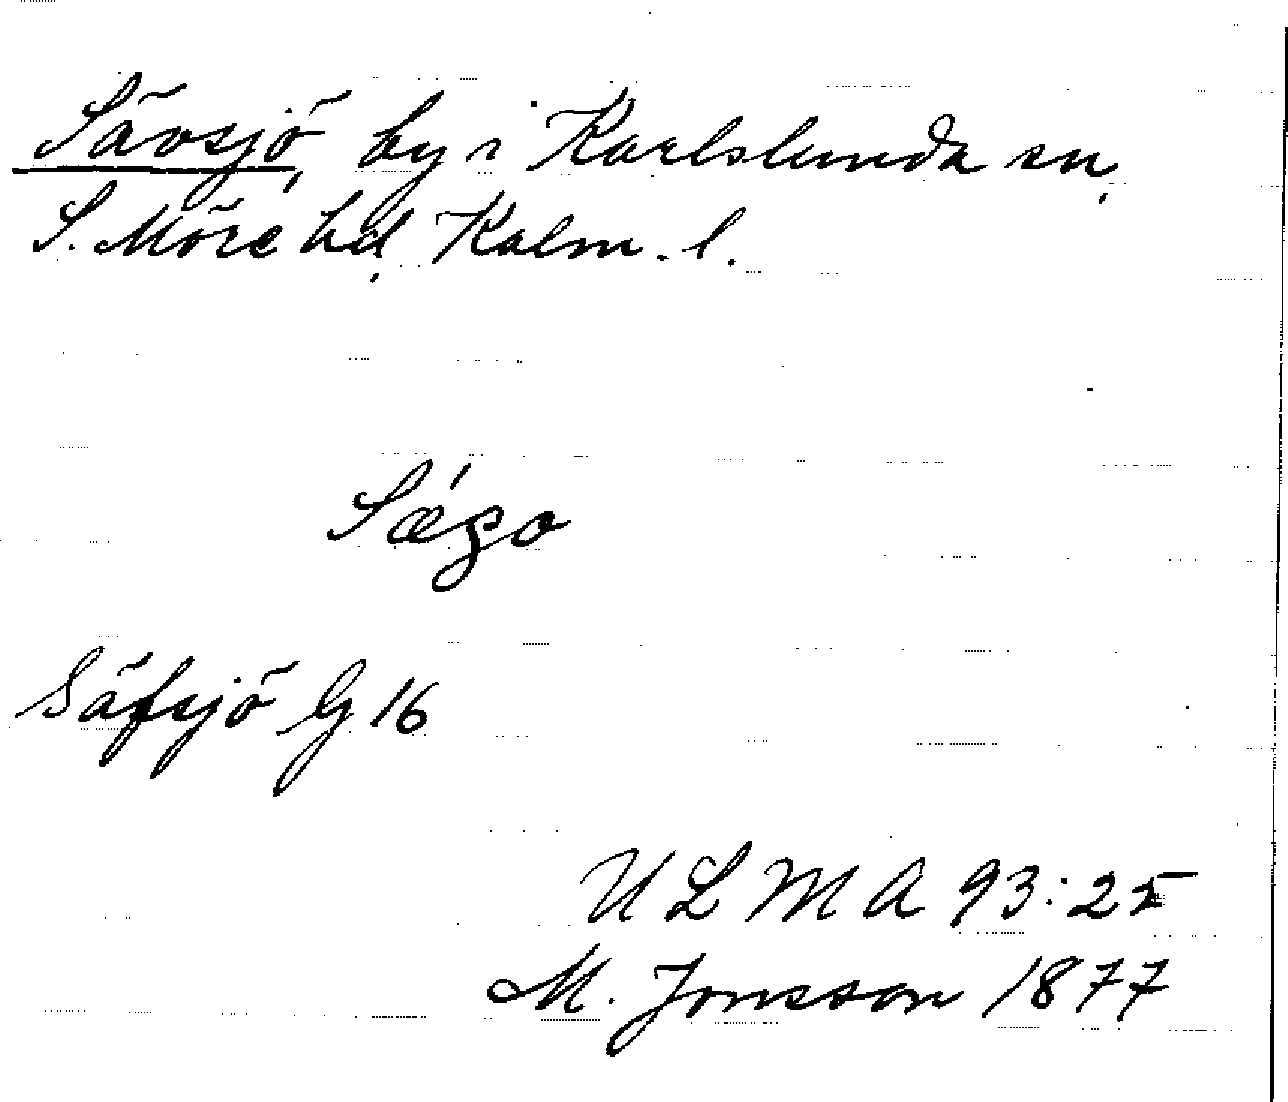 Sävsjö, by i Karlslunda sn,
S. Möre hd, Kalm. l.
Säfsjö G 16
ULMA 93:25
M. Jonsson 1877